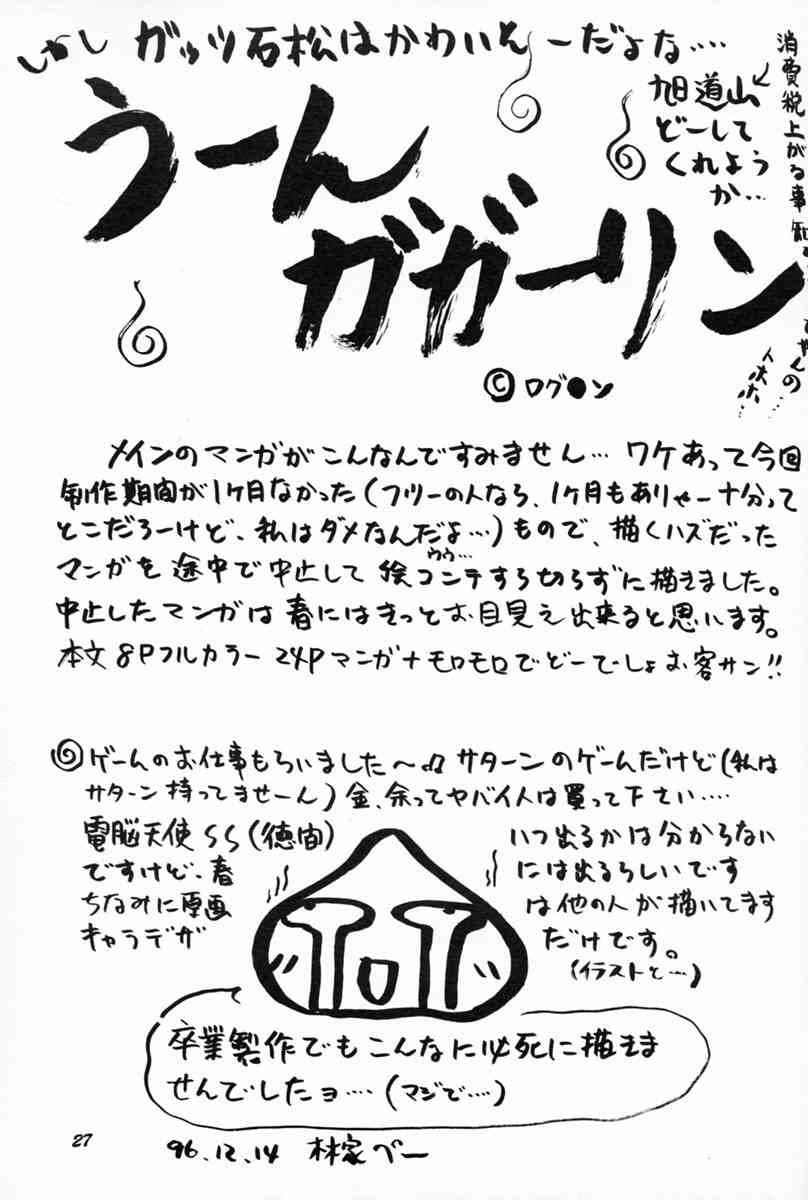 しかし ガッツ石松はかわいそーだよな‥‥
消費税上がる事
旭道山
どーして
くれよう
か‥
うーん
ガガーリン
© ログ●ン
メインのマンガがこんなんですみません… ワケあって今回
制作期間が1ヶ月なかった(フツーの人なら、1ヶ月もありゃー十分って
とこだろーけど、私はダメなんだよ…)もので、描くハズだった
ウゥ…
マンガを途中で中止して絵コンテすら切らずに描きました。
中止したマンガは春にはきっとお目見え出来ると思います。
本文8Pフルカラー24Pマンガ+モロモロでどーでしょお客サン!!
◎ゲームのお仕事もらいました〜♫ サターンのゲームだけど(私は
サターン持ってませーん)金、余ってヤバイ人は買って下さい‥‥
電脳天使SS(徳間) いつ出るかは分からない
ですけど、春 には出るらしいです
ちなみに原画 は他の人が描いてます
キャラデザ だけです。
(イラストと…)
卒業製作でもこんなに必死に描きま
せんでしたョ…(マジで‥‥)
27
96.12.14 林家ペー